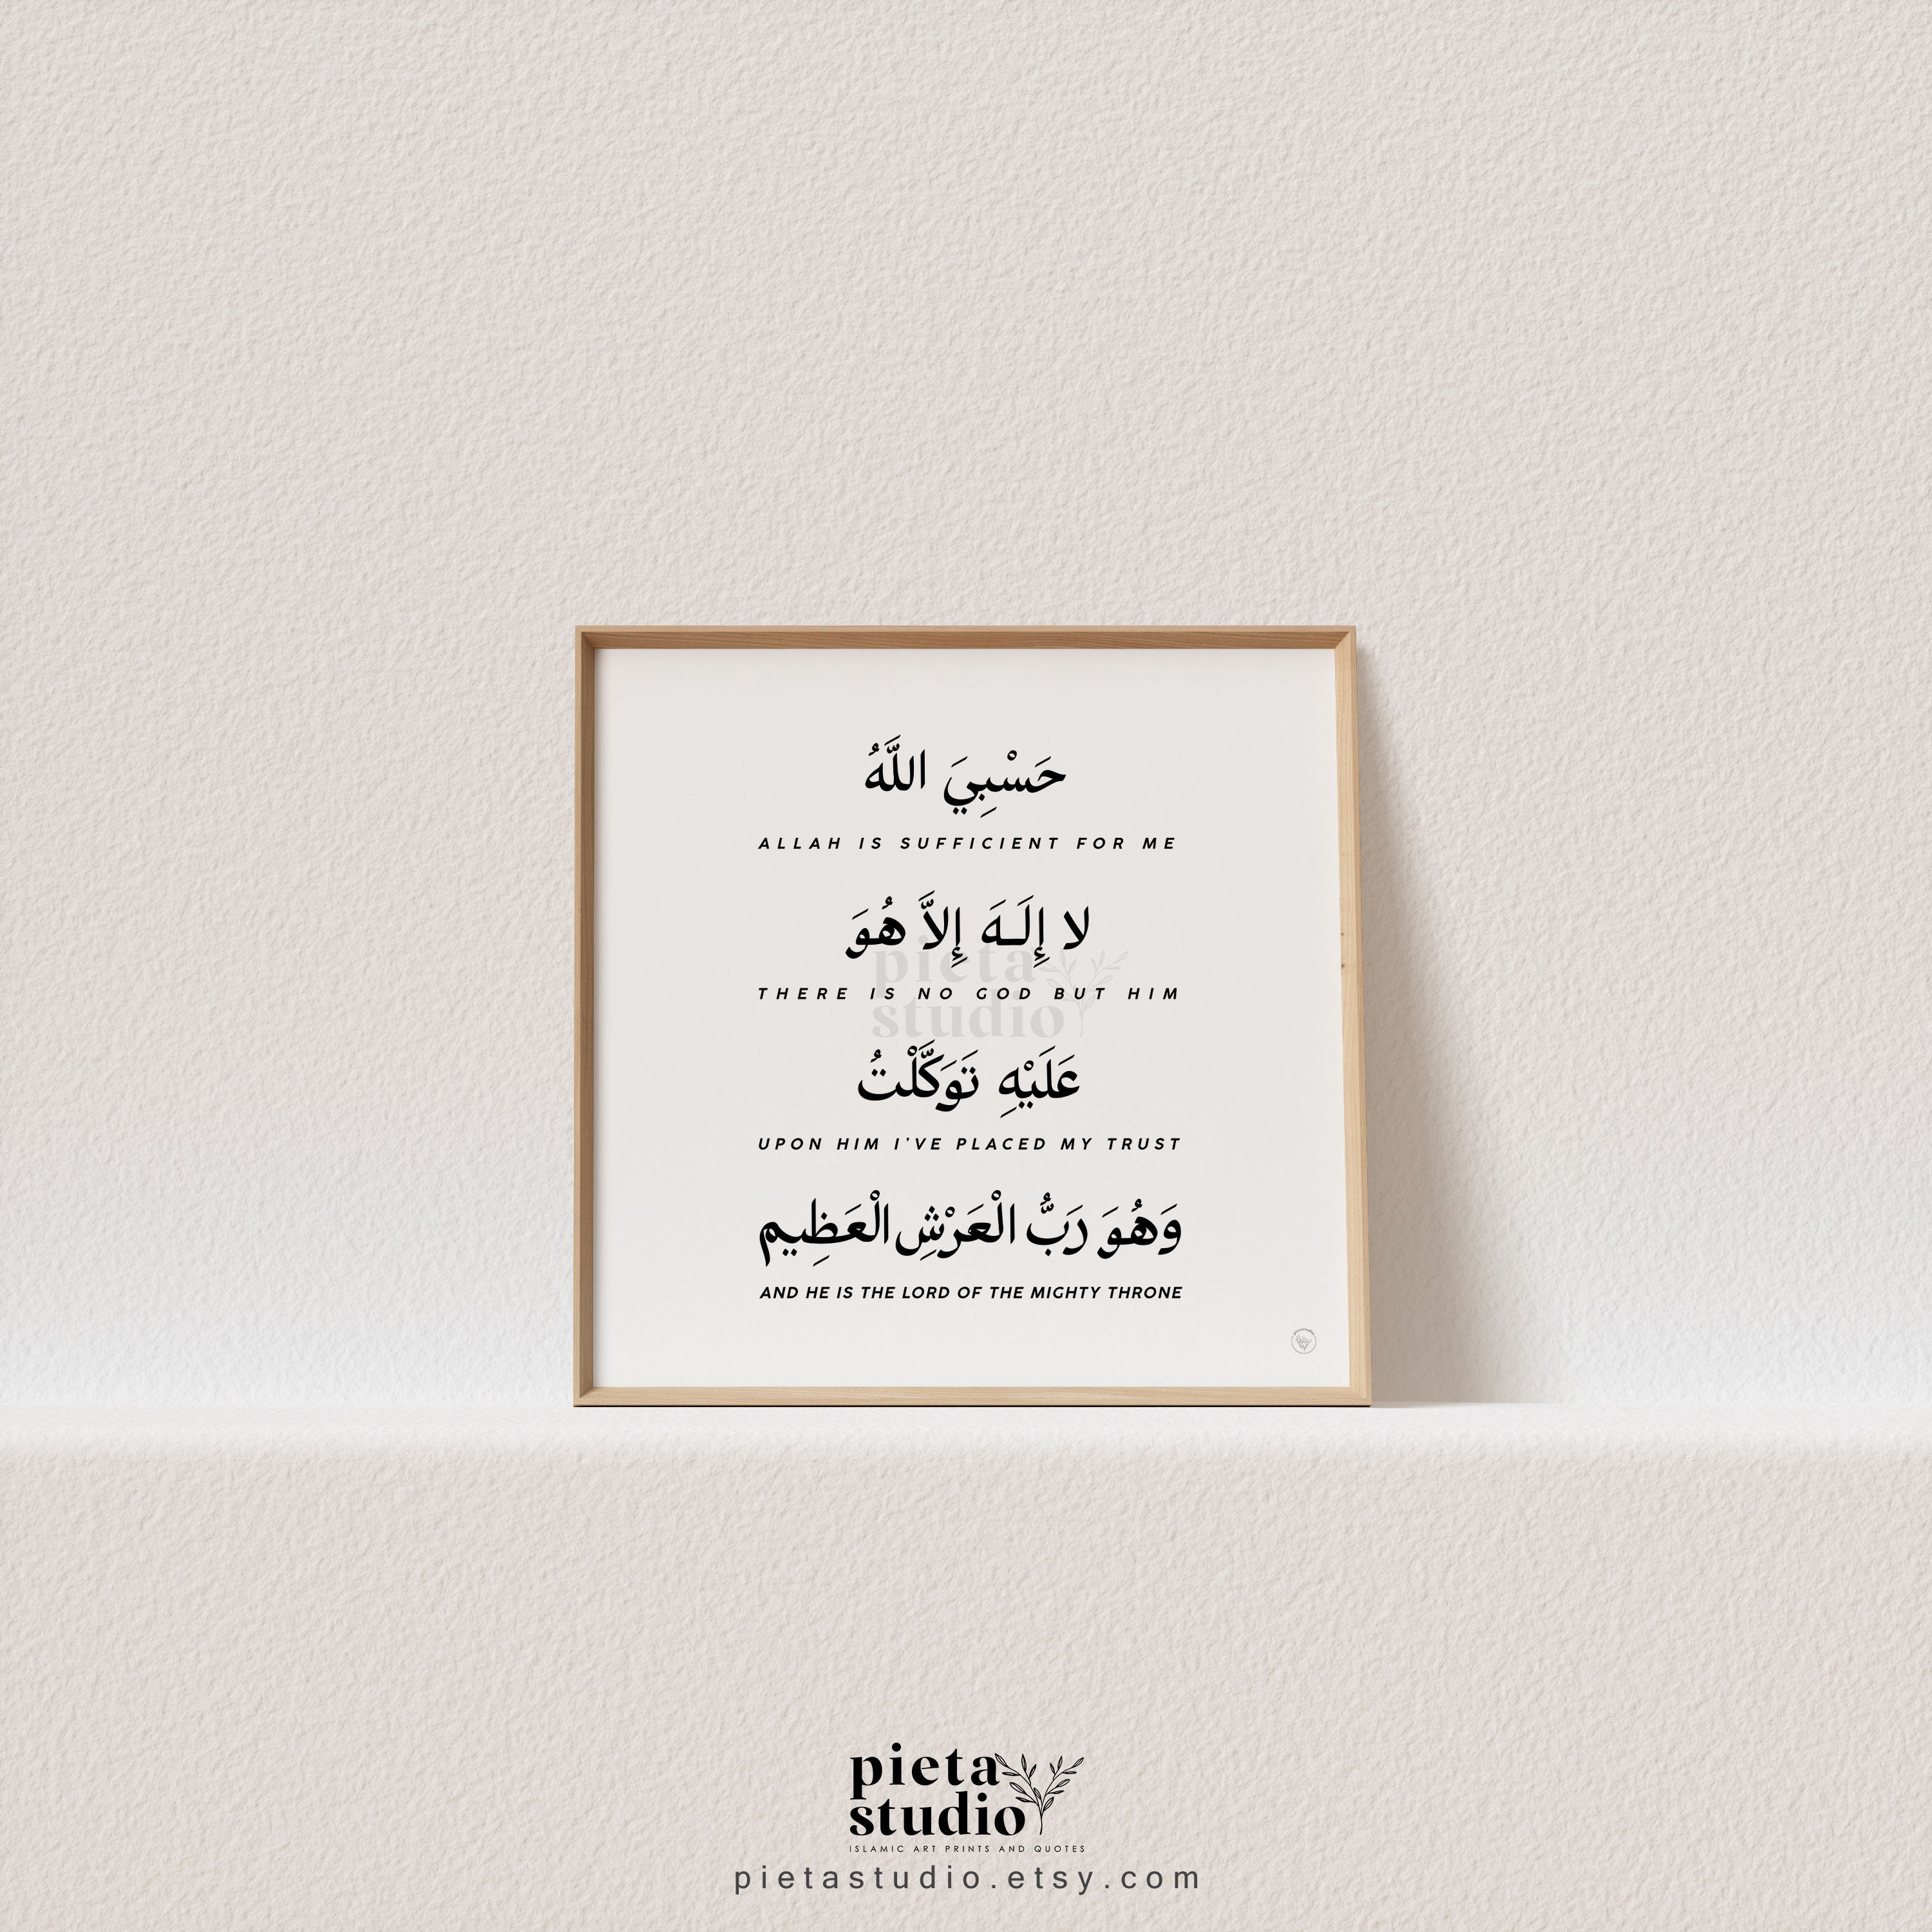 حَسْبِيَ اللَّهُ
ALLAH IS SUFFICIENT FOR ME
لا إِلَـهَ إِلاَّ هُوَ
pieta
THERE IS NO GOD BUT HIM
studio
عَلَيْهِ تَوَكَّلْتُ
UPON HIM I'VE PLACED MY TRUST
وَهُوَ رَبُّ الْعَرْشِ الْعَظِيم
AND HE IS THE LORD OF THE MIGHTY THRONE
pieta
studio
ISLAMIC ART PRINTS AND QUOTES
pietastudio.etsy.com